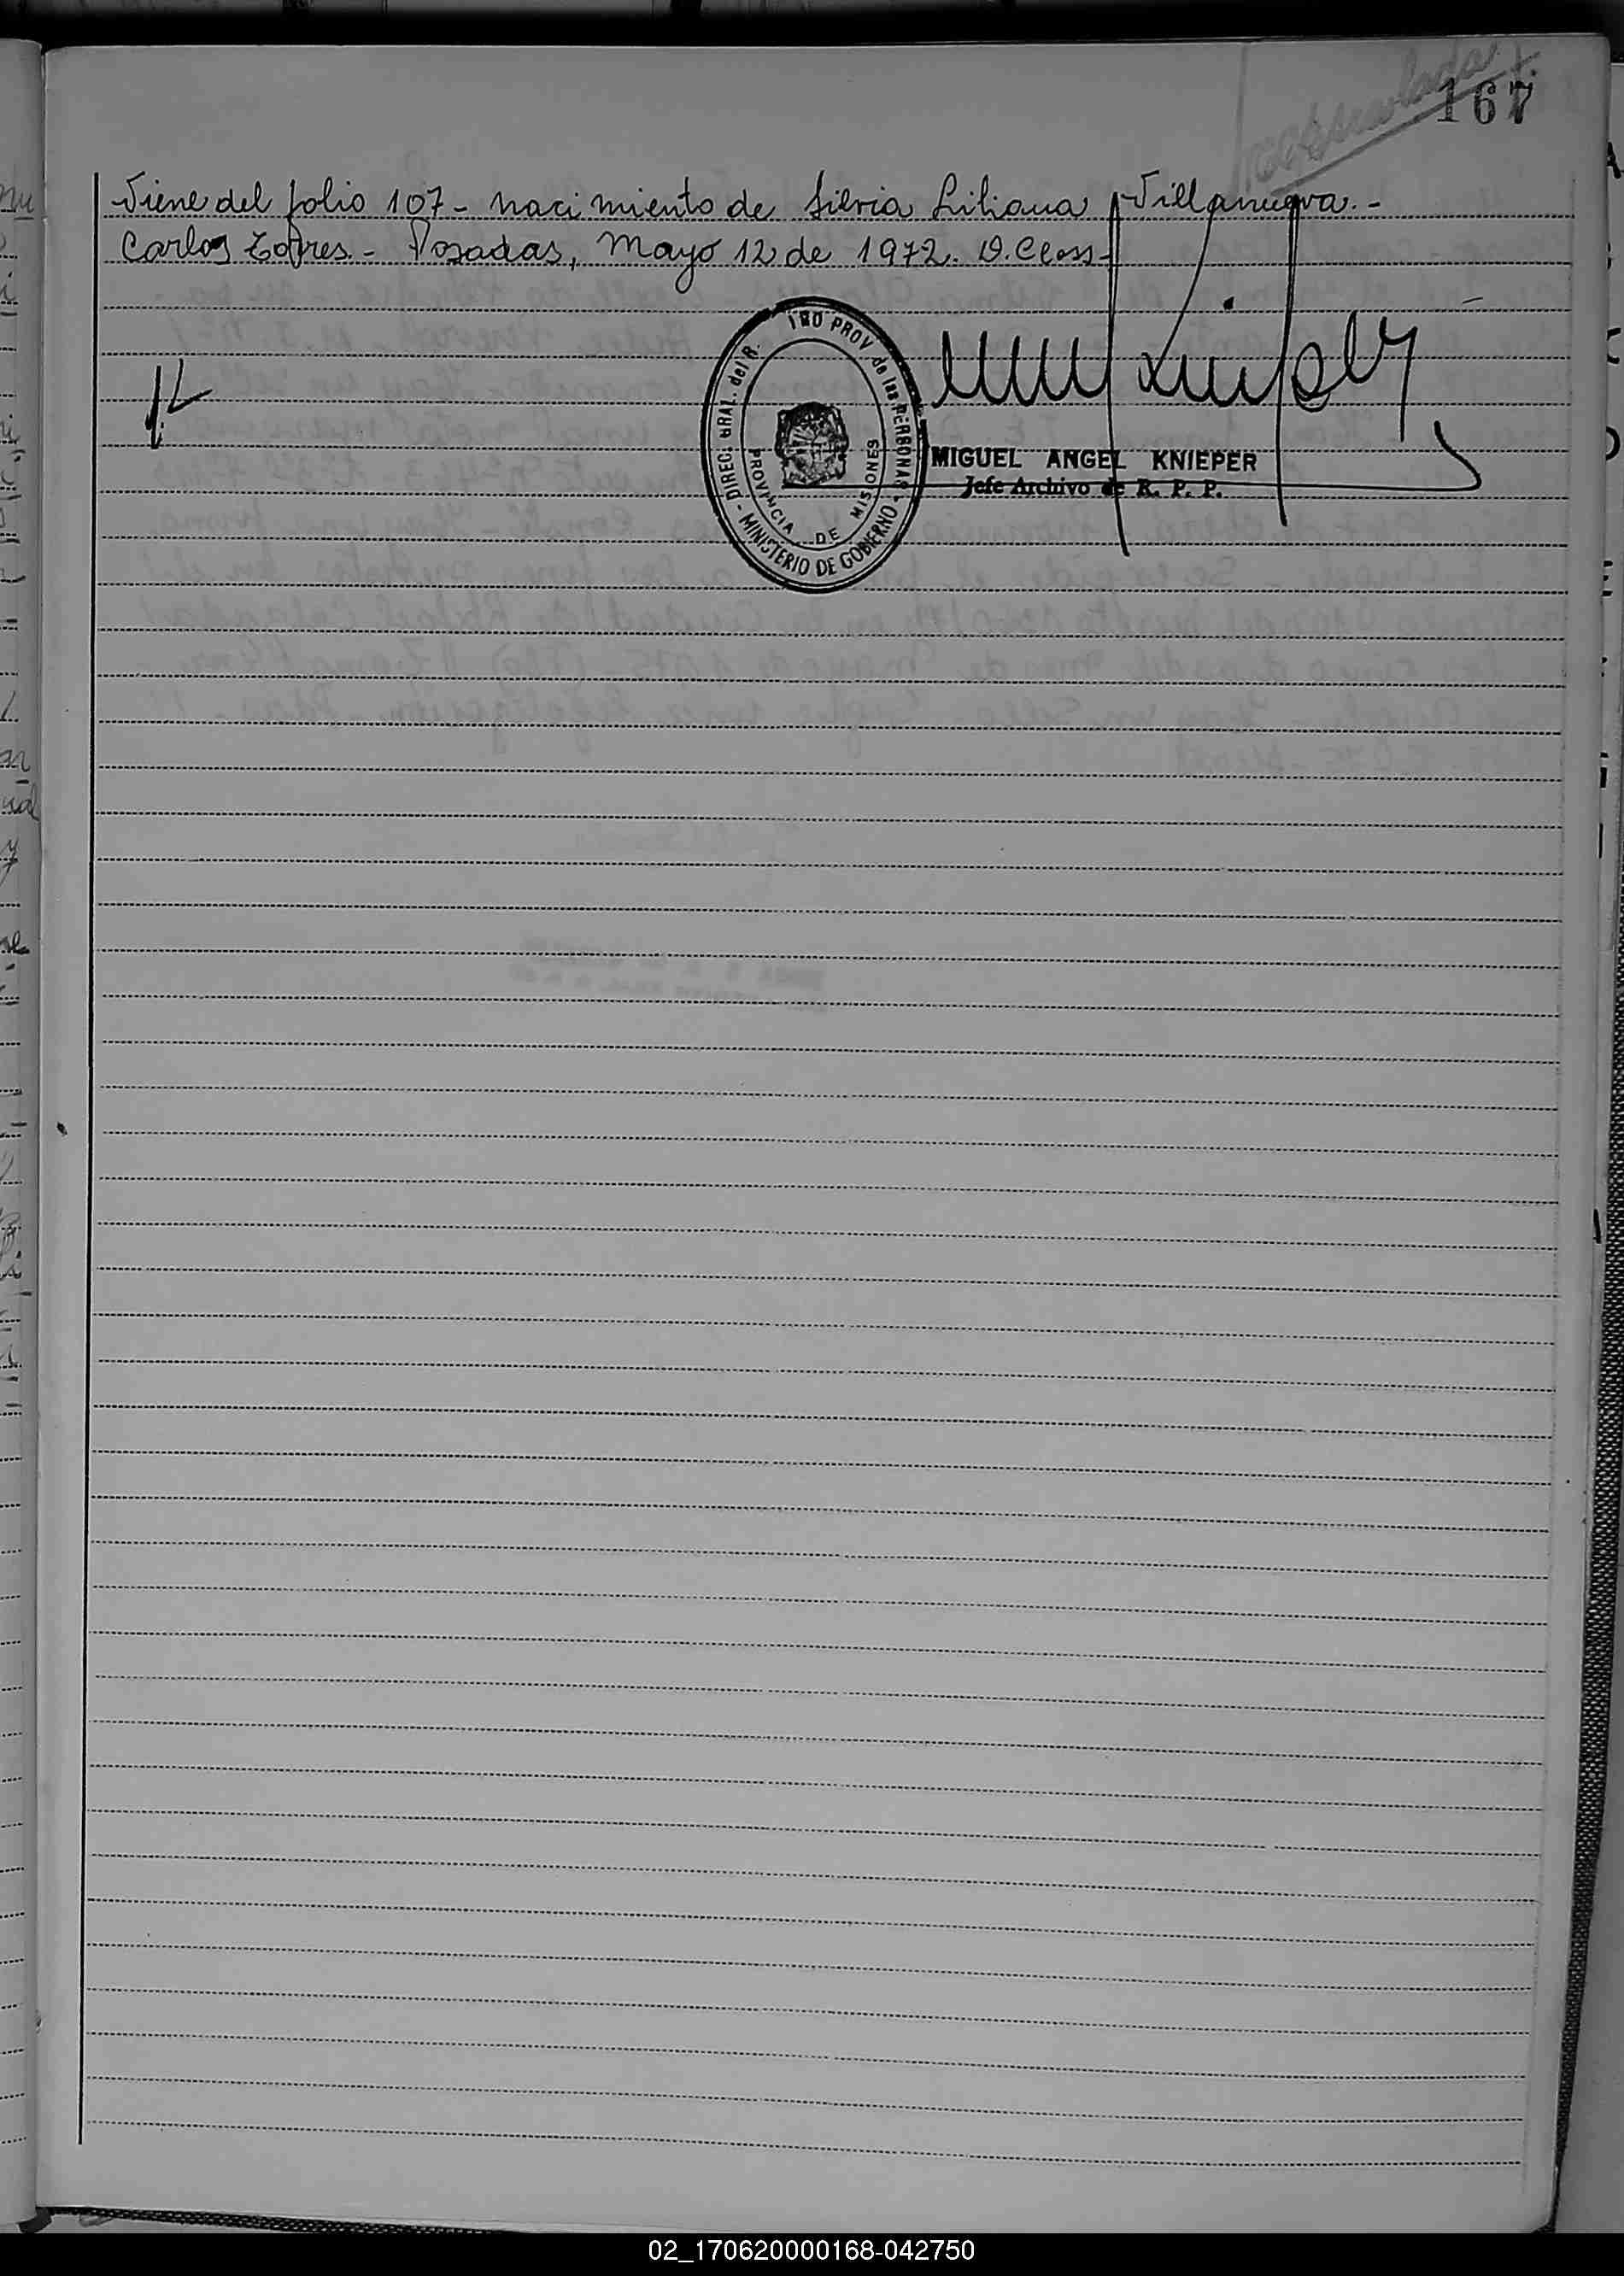 167
Viene del folio 107 - nacimiento de Silvia Liliana Villanueva. -
Carlos Torres. - Posadas, Mayo 12 de 1972. O. Closs -
DIREC. GRAL. del R. TRO PROV de las PERSONAS - MINISTERIO DE GOBIERNO -
PROVINCIA DE MISIONES
MIGUEL ANGEL KNIEPER
Jefe Archivo de R. P. P.
02_170620000168-042750